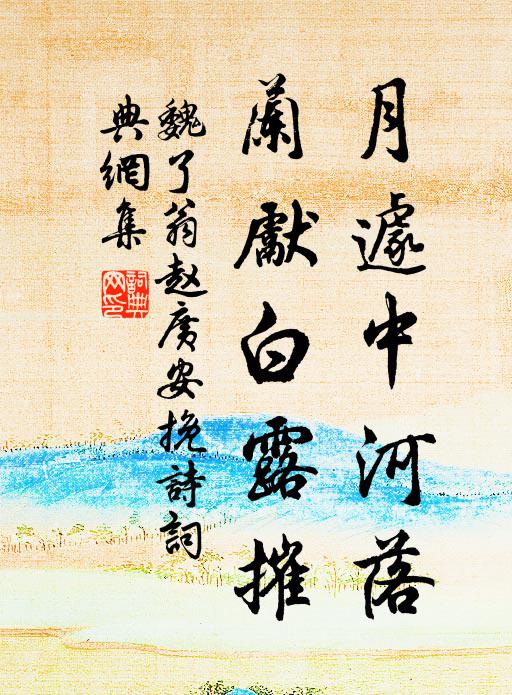 月遽中河落
蘭獻白露摧
魏了翁赵廣安挽詩詞
典網集
詞典
网印